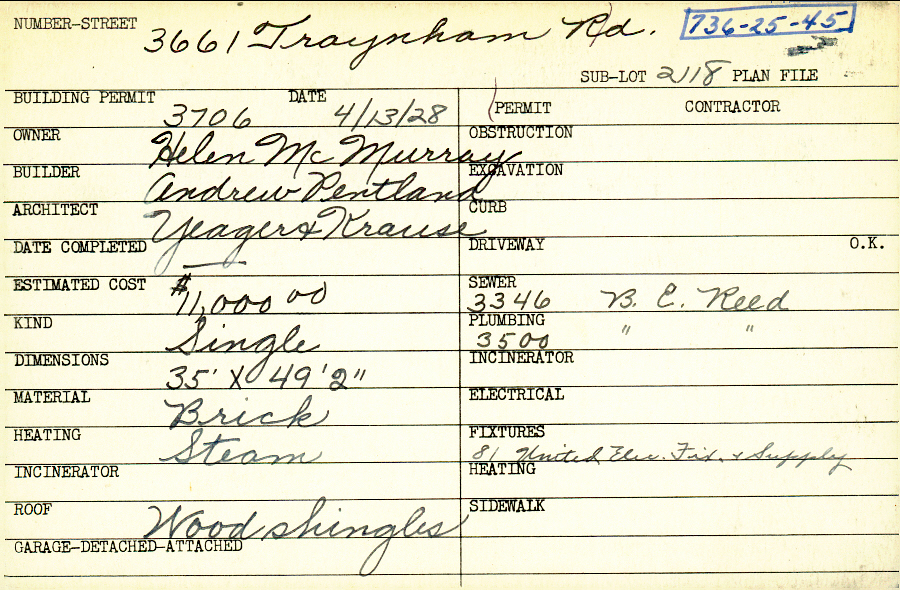 NUMBER-STREET 3661 Traynham Rd. 736-25-45
SUB-LOT 2118 PLAN FILE
BUILDING PERMIT 3706 DATE 4/13/28
PERMIT CONTRACTOR
OWNER Helen McMurray
OBSTRUCTION
BUILDER Andrew Pentland
EXCAVATION
ARCHITECT Yeager & Krause
CURB
DATE COMPLETED —
DRIVEWAY O.K.
ESTIMATED COST $11,000 00
SEWER 3346 B. E. Reed
KIND Single
PLUMBING 3500 " "
DIMENSIONS 35' X 49'2"
INCINERATOR
MATERIAL Brick
ELECTRICAL
HEATING Steam
FIXTURES 81 United Elec. Fix. & Supply
INCINERATOR
HEATING
ROOF Wood shingles
SIDEWALK
GARAGE-DETACHED-ATTACHED